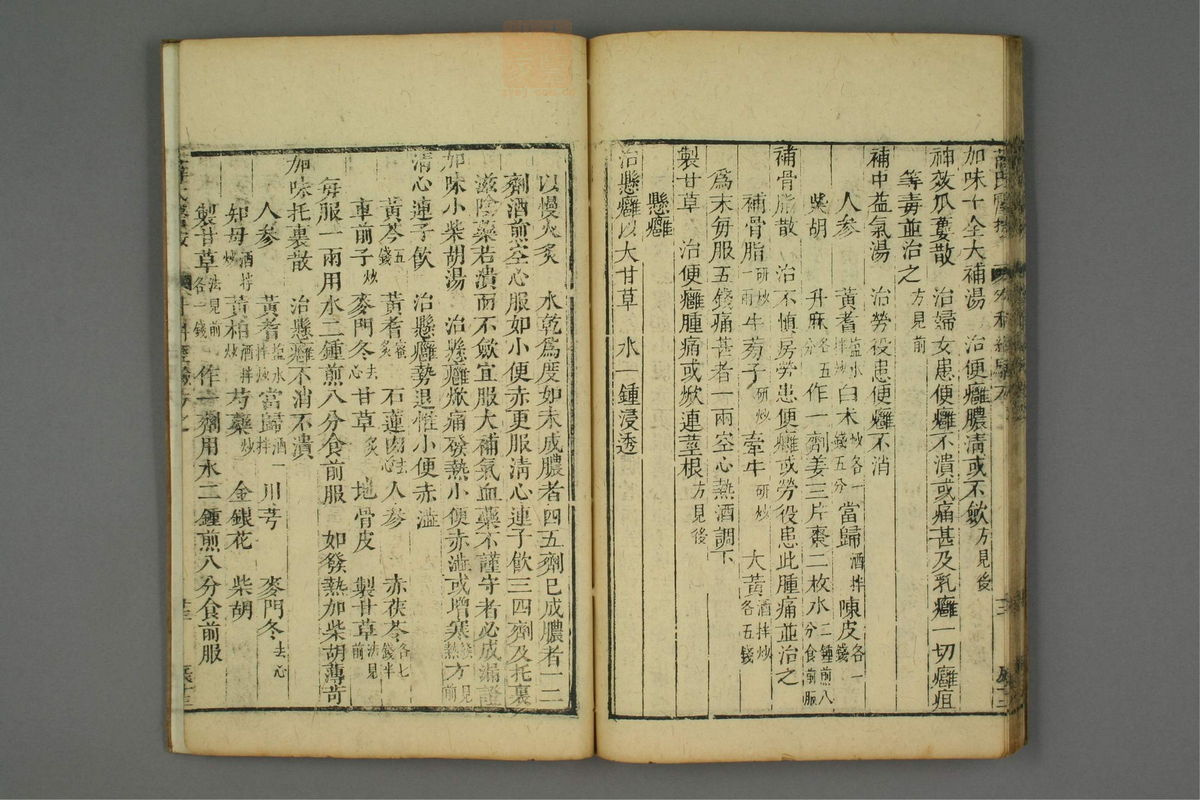 加味十全大補湯 治便癰膿清或不歛方見後
神效瓜蔞散 治婦女患便癰不潰或痛甚及乳癰一切癰疽
等毒並治之方見前
補中益氣湯 治勞役患便癰不消
人參 黃耆鹽水拌炒 白术炒各一錢五分 當歸酒拌 陳皮各一錢
柴胡 升麻各五分 作一劑姜三片棗二枚水二鍾煎八分食前服
補骨脂散 治不慎房勞患便癰或勞役患此腫痛並治之
補骨脂研炒一兩 牛蒡子研炒 牽牛研炒 大黃酒拌炒各五錢
爲末每服五錢痛甚者一兩空心熱酒調下
製甘草 治便癰腫痛或焮連莖根方見後
懸癰
治懸癰以大甘草 水一鍾浸透
以慢火炙 水乾爲度如未成膿者四五劑已成膿者一二
劑酒煎空心服如小便赤更服清心連子飲三四劑及托裏
滋陰藥若潰而不歛宜服大補氣血藥不謹守者必成漏證
加味小柴胡湯 治懸癰焮痛發熱小便赤澁或增寒熱方見前
清心連子飲 治懸癰勢退惟小便赤澁
黃芩五錢 黃耆蜜炙 石蓮肉去心 人參 赤茯苓各七錢半
車前子炒 麥門冬去心 甘草炙 地骨皮 製甘草法見前
每服一兩用水二鍾煎八分食前服 如發熱加柴胡薄苛
加味托裏散 治懸癰不消不潰
人參 黃耆鹽水拌炒 當歸酒拌 川芎 麥門冬去心
知母酒拌炒 黃柏酒拌炒 芍藥炒 金銀花 柴胡
製甘草法見前各一錢 作一劑用水二鍾煎八分食前服